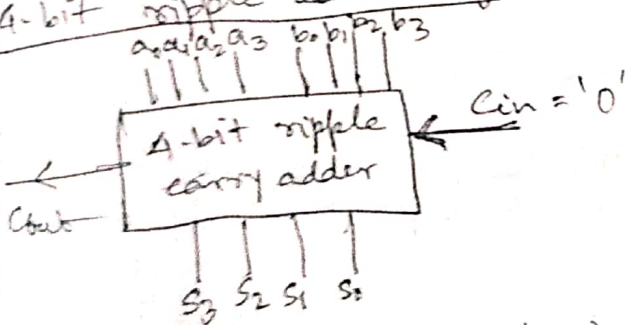 4-bit ripple
a₀ a₁ a₂ a₃ b₀ b₁ b₂ b₃
Cin = '0'
4-bit ripple
carry adder
Cout
S₃ S₂ S₁ S₀